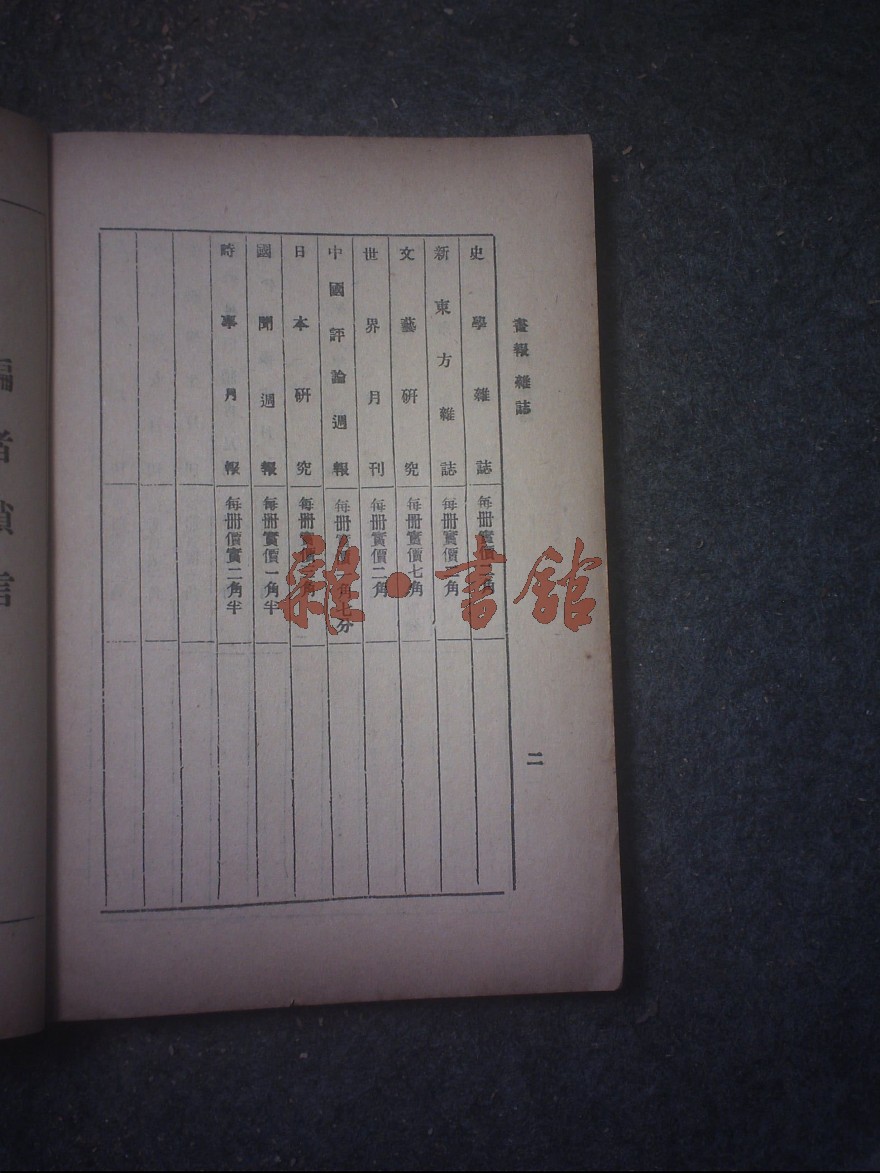 書報雜誌
二
史學雜誌 每冊實價角
新東方雜誌 每冊實價角
文藝研究 每冊實價七角
世界月刊 每冊實價二角
中國評論週報 每冊實價角七分
日本研究 每冊實價角
國聞週報 每冊實價一角半
時事月報 每冊價實二角半
編者瑣言
雜·書館